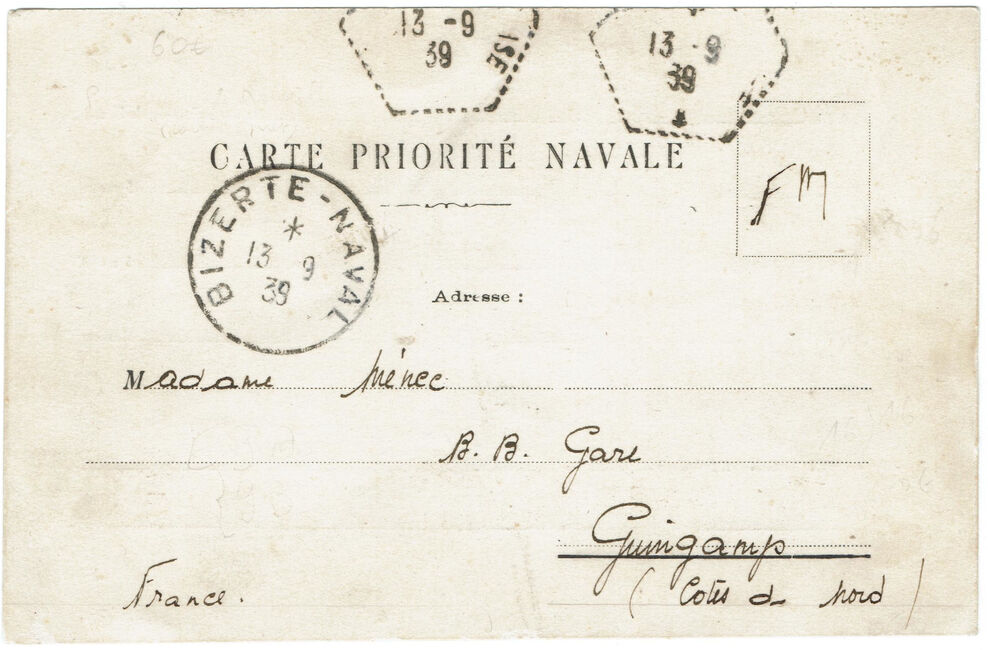 13 -9
39
ISE
13 - 9
39
CARTE PRIORITÉ NAVALE
FM
BIZERTE-NAVAL
*
13 9
39
Adresse :
Madame Ménec
B. B. Gare
Guingamp
(Cotes d Nord)
France.